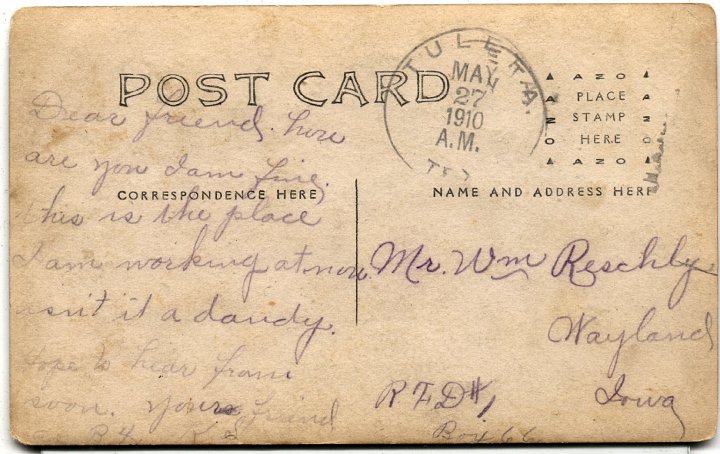 POST CARD
TULE
MAY
27
1910
A.M.
TEX
AZO
PLACE
STAMP
HERE
AZO
CORRESPONDENCE HERE
NAME AND ADDRESS HERE
Dear friend. how
are you I am fine.
this is the place
I am working at now
isn't it a dandy.
hope to hear from
soon. yours friend
Mr. Wm Reschly
Wayland
Iowa
RFD #1
Box 66